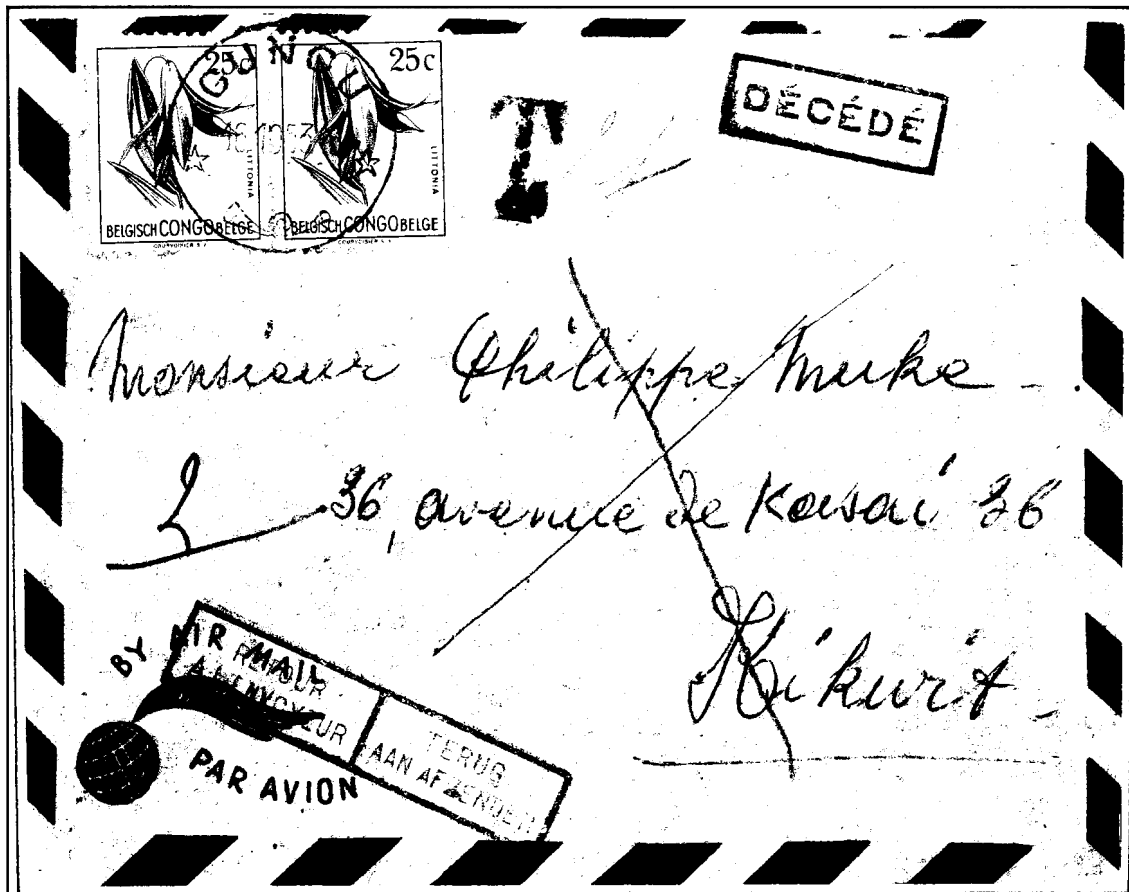 25c 25c
LITTONIA LITTONIA
BELGISCH CONGO BELGE BELGISCH CONGO BELGE
COURVOISIER S.A. COURVOISIER S.A.
T
DÉCÉDÉ
Monsieur Philippe Muke
36, avenue de Kasaï 36
Kikwit
BY AIR MAIL
PAR AVION
RETOUR
A L'ENVOYEUR
TERUG
AAN AFZENDER